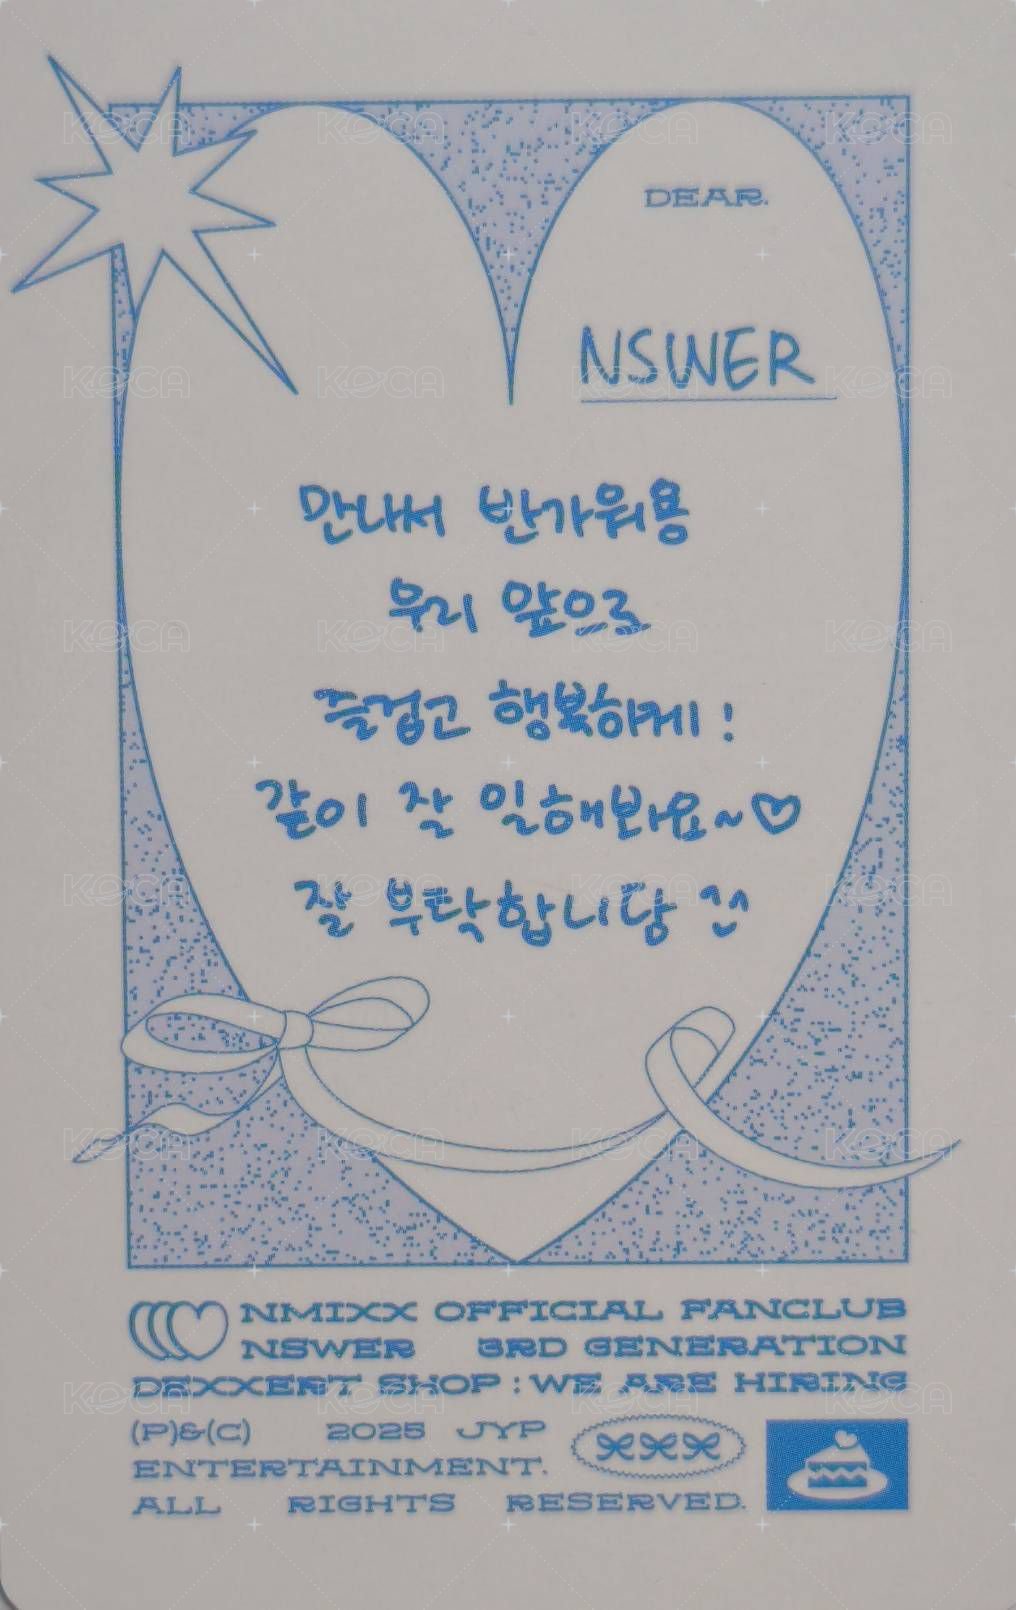 DEAR.
NSWER
만나서 반가워용
우리 앞으로
즐겁고 행복하게!
같이 잘 일해봐요~♡
잘 부탁합니당 ^^
NMIXX OFFICIAL FANCLUB
NSWER 3RD GENERATION
DEXXERT SHOP : WE ARE HIRING
(P)&(C) 2025 JYP
ENTERTAINMENT.
ALL RIGHTS RESERVED.
KOCA